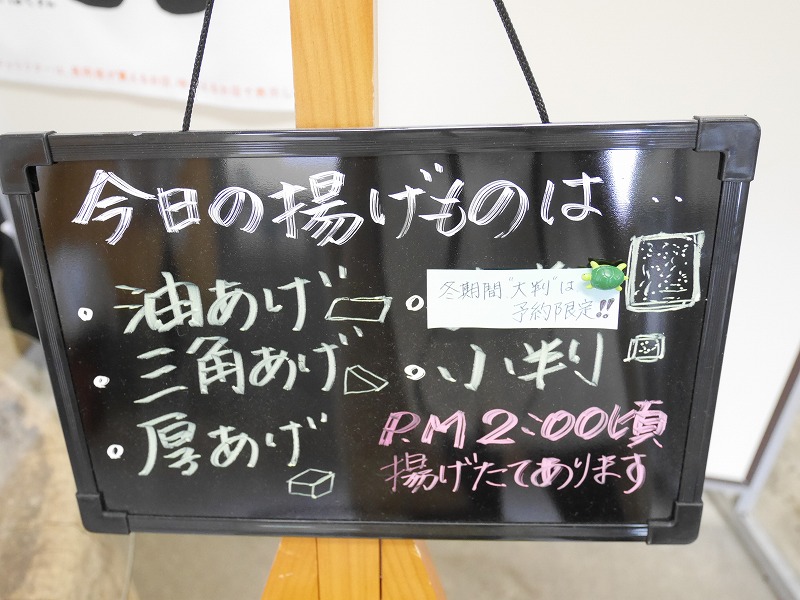 今日の揚げものは‥
・油あげ
・三角あげ
・厚あげ
冬期間"大判"は
予約限定!!
・小判
P.M 2:00頃
揚げたてあります